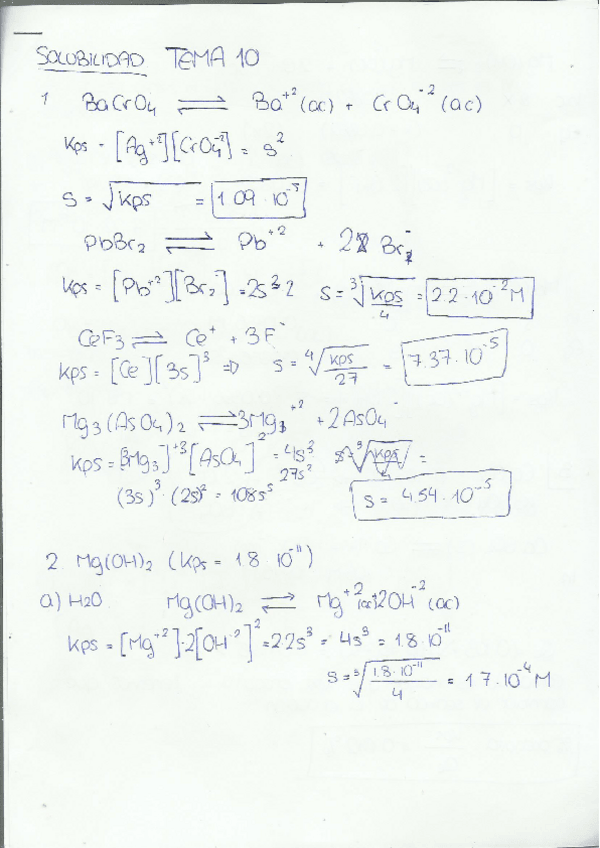 SOLUBILIDAD TEMA 10
1 BaCrO4 ⇌ Ba+2 (ac) + CrO4-2 (ac)
Kps = [Ag+2][CrO4-2] = s2
s = √Kps = 1'09 · 10-5
PbBr2 ⇌ Pb+2 + 2 Br2-
Kps = [Pb+2][Br2-] = 2s2·2 s = 3√Kps/4 = 2'2 · 10-2 M
CeF3 ⇌ Ce+ + 3F-
Kps = [Ce][3s]3 => s = 4√Kps/27 = 7'37 · 10-5
Mg3(AsO4)2 ⇌ 3Mg3+2 + 2AsO4-
Kps = [3Mg3]+3 [AsO4]2 = 4s3
27s2
(3s)3 · (2s)2 = 108s5 s = 4'54 · 10-5
2. Mg(OH)2 (Kps = 1'8 · 10-11)
a) H2O. Mg(OH)2 ⇌ Mg+2 (ac) 2OH-2 (ac)
Kps = [Mg+2]·2[OH-2]2 = 2·2s3 = 4s3 = 1'8 · 10-11
s = 3√1'8 · 10-11/4 = 1'7 · 10-4 M